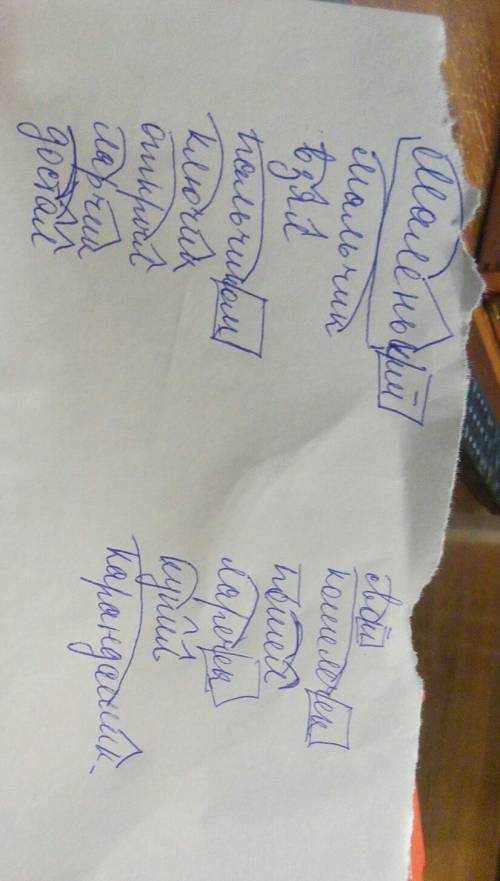 Маленький
мальчик
взял
пальчиком
ключик
открыл
ларчик
достал
свой
кошелочек
пошел
ларечек
купил
карандашик.